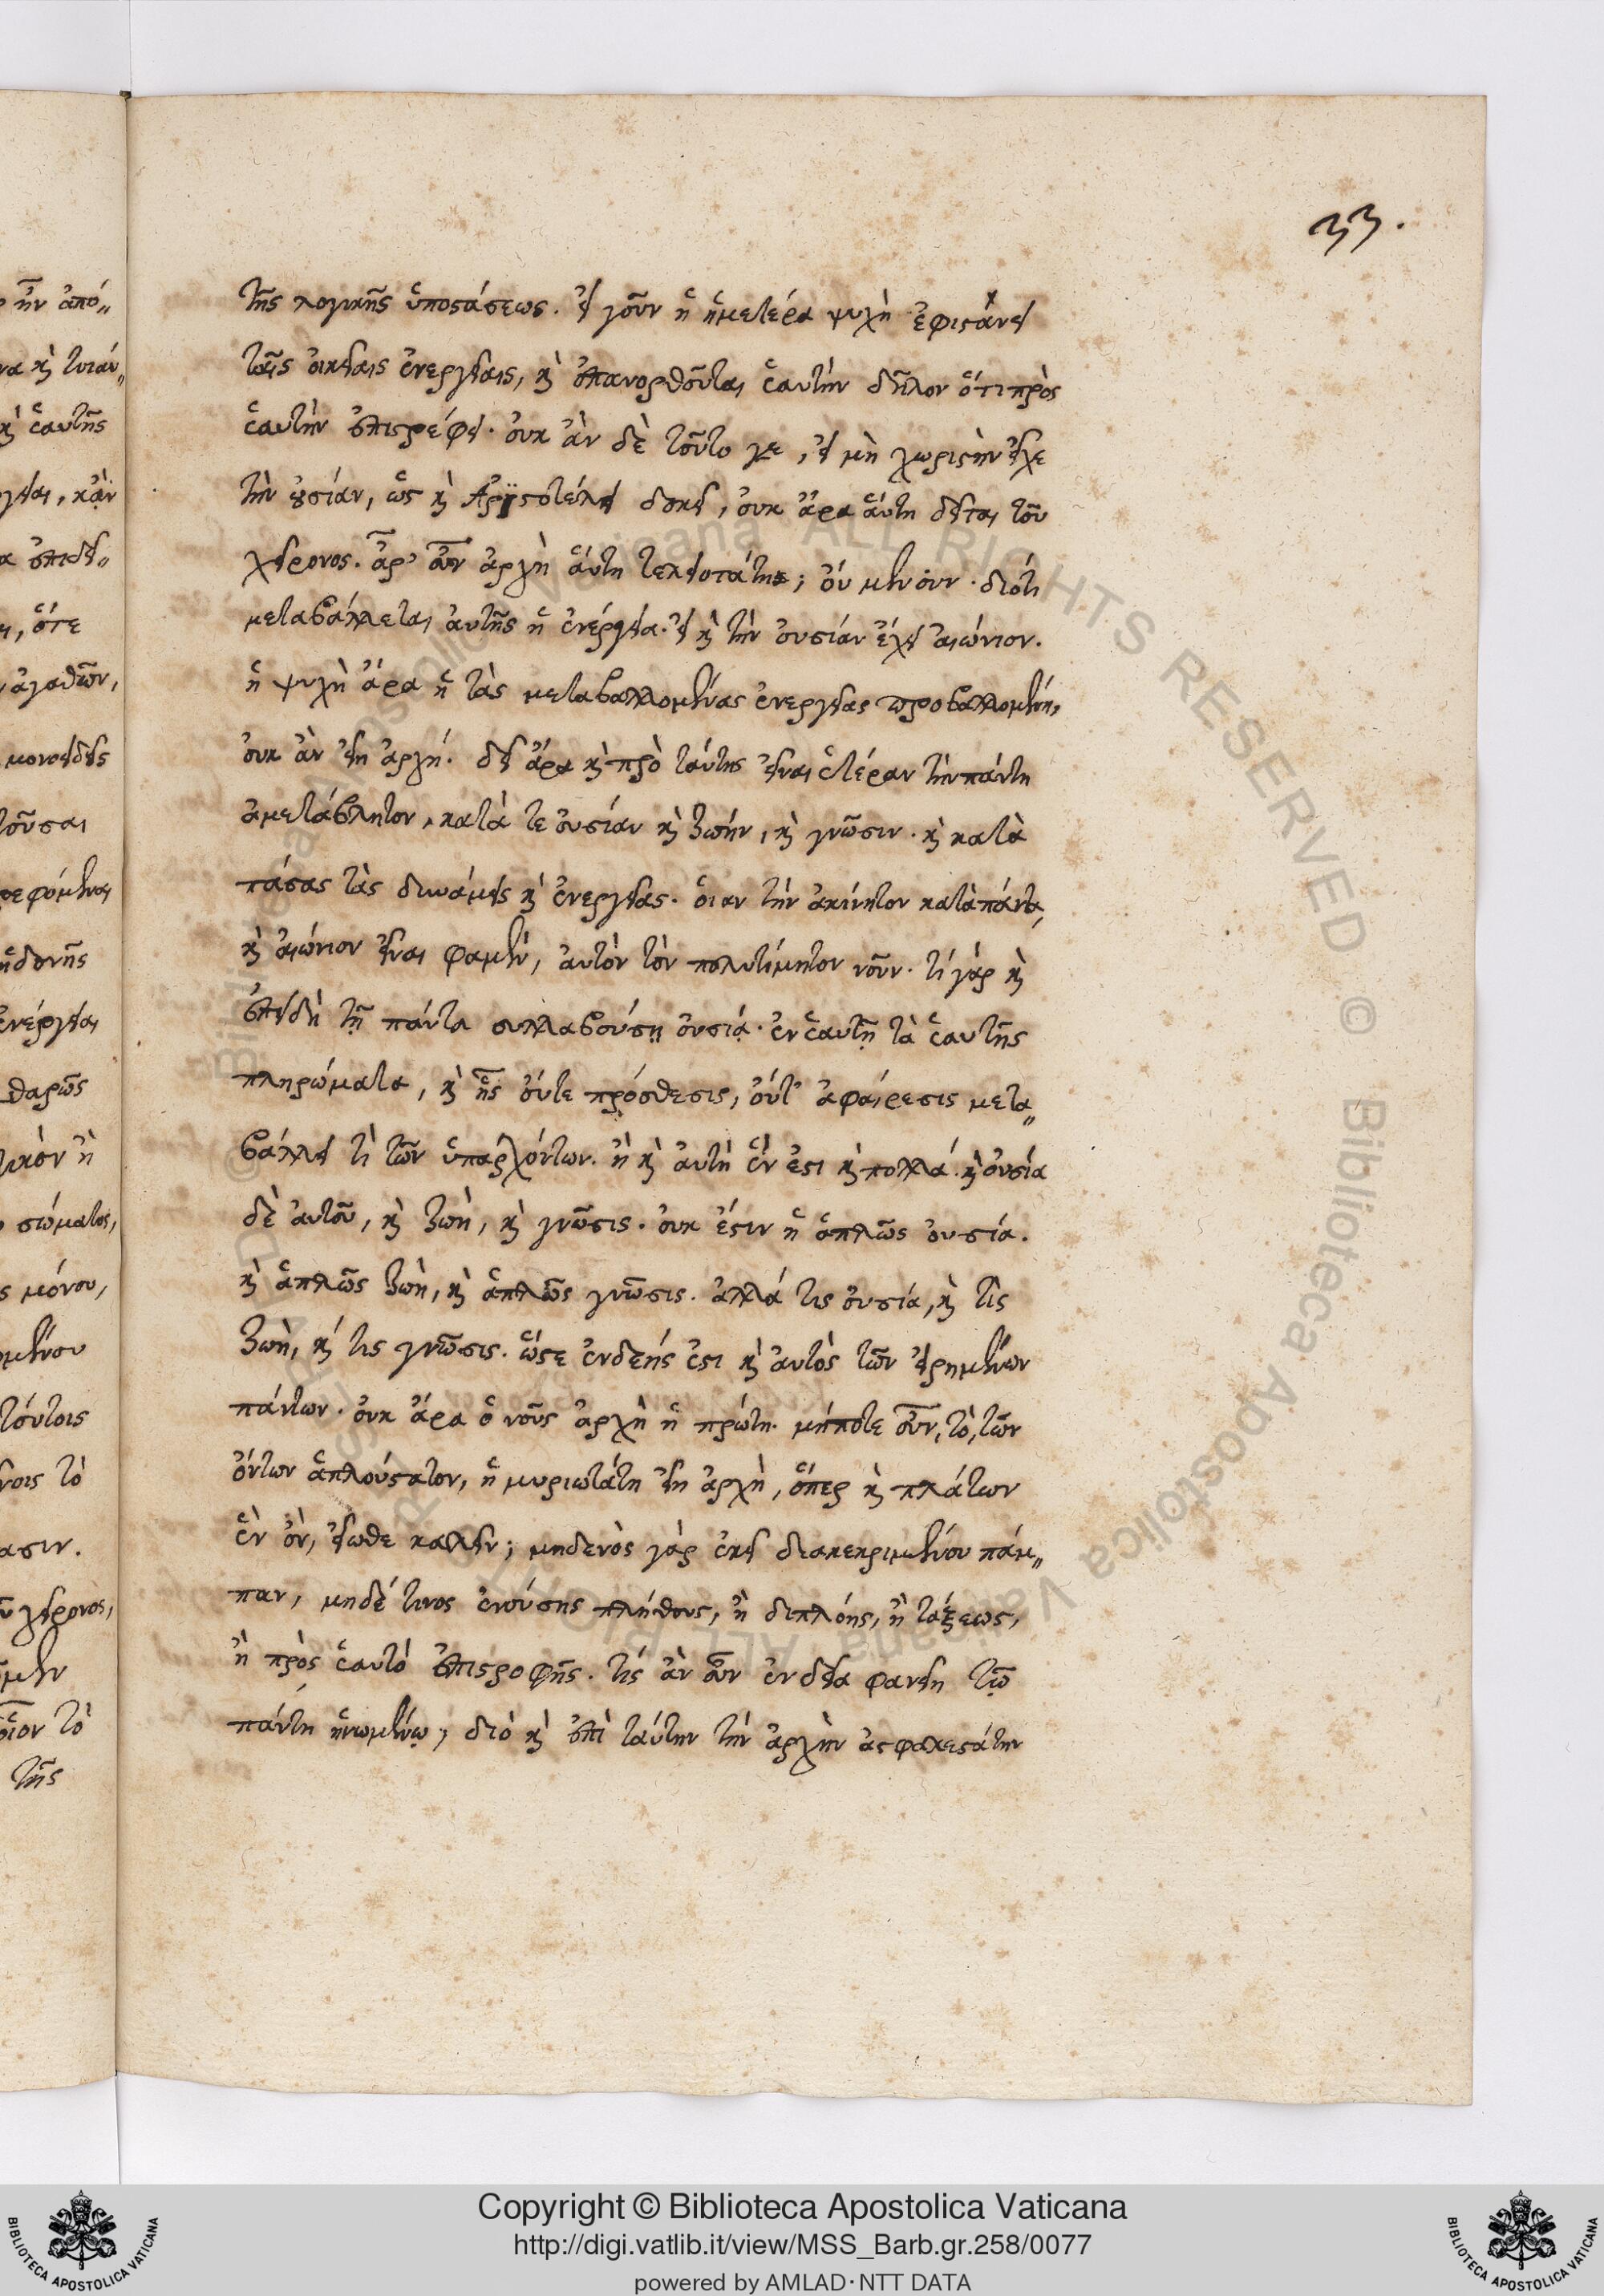 33.
τῆς λογικῆς ὑποστάσεως. εἰ γοῦν ἡ ἡμετέρα ψυχὴ ἐφιστάνει
ταῖς οἰκείαις ἐνεργείαις, καὶ ἐπανορθοῦται ἑαυτὴν δῆλον ὅτι πρὸς
ἑαυτὴν ἐπιστρέφει. οὐκ ἂν δὲ τοῦτο γε, εἰ μὴ χωριστὴν εἶχε
τὴν οὐσίαν, ὡς καὶ Ἀριστοτέλει δοκεῖ, οὐκ ἄρα αὕτη δεῖται τοῦ
χείρονος. ἆρ' οὖν ἀρχὴ αὕτη τελειοτάτη; οὐ μὲν οὖν. διότι
μεταβάλλεται αὐτῆς ἡ ἐνέργεια. εἰ καὶ τὴν οὐσίαν ἔχει αἰώνιον.
ἡ ψυχὴ ἄρα ἡ τὰς μεταβαλλομένας ἐνεργείας προβαλλομένη,
οὐκ ἂν εἴη ἀρχή. δεῖ ἄρα καὶ πρὸ ταύτης εἶναι ἑτέραν τὴν πάντη
ἀμετάβλητον, κατά τε οὐσίαν καὶ ζωήν, καὶ γνῶσιν. καὶ κατὰ
πάσας τὰς δυνάμεις καὶ ἐνεργείας. οἵαν τὴν ἀκίνητον κατὰ πάντα,
καὶ αἰώνιον εἶναι φαμέν, αὐτὸν τὸν πολυτίμητον νοῦν. τί γάρ καὶ
ἐπειδὴ τῇ πάντα συλλαβούσῃ οὐσίᾳ. ἐν ἑαυτῇ τὰ ἑαυτῆς
πληρώματα, καὶ ἧς οὔτε πρόσθεσις, οὔτ' ἀφαίρεσις μετα„
βάλλει τὶ τῶν ὑπαρχόντων. ἢ καὶ αὐτὴ ἕν ἐστι καὶ πολλά. καὶ οὐσία
δὲ αὐτοῦ, καὶ ζωὴ, καὶ γνῶσις. οὐκ ἔστιν ἡ ἁπλῶς οὐσία.
καὶ ἁπλῶς ζωὴ, καὶ ἁπλῶς γνῶσις. ἀλλά τις οὐσία, καὶ τὶς
ζωὴ, καί τις γνῶσις. ὥστε ἐνδεής ἐστι καὶ αὐτὸς τῶν εἰρημένων
πάντων. οὐκ ἄρα ὁ νοῦς ἀρχὴ ἡ πρώτη. μήποτε οὖν, τὸ, τῶν
ὄντων ἁπλούστατον, ἡ μυριωτάτη εἴη ἀρχὴ, ὅπερ καὶ πλάτων
ἓν ὂν, εἴωθε καλεῖν; μηδενὸς γὰρ ἐκεῖ διακεκριμένου πάμ„
παν, μηδέ τινος ἐνούσης πλήθους, ἢ διπλόης, ἢ τάξεως,
ἢ πρὸς ἑαυτό ἐπιστροφῆς. τίς ἂν οὖν ἔνδεια φανείη τῷ
πάντη ἡνωμένῳ; διὸ καὶ ἐπὶ ταύτην τὴν ἀρχὴν ἀσφαλεστάτην
Copyright © Biblioteca Apostolica Vaticana
http://digi.vatlib.it/view/MSS_Barb.gr.258/0077
powered by AMLAD·NTT DATA